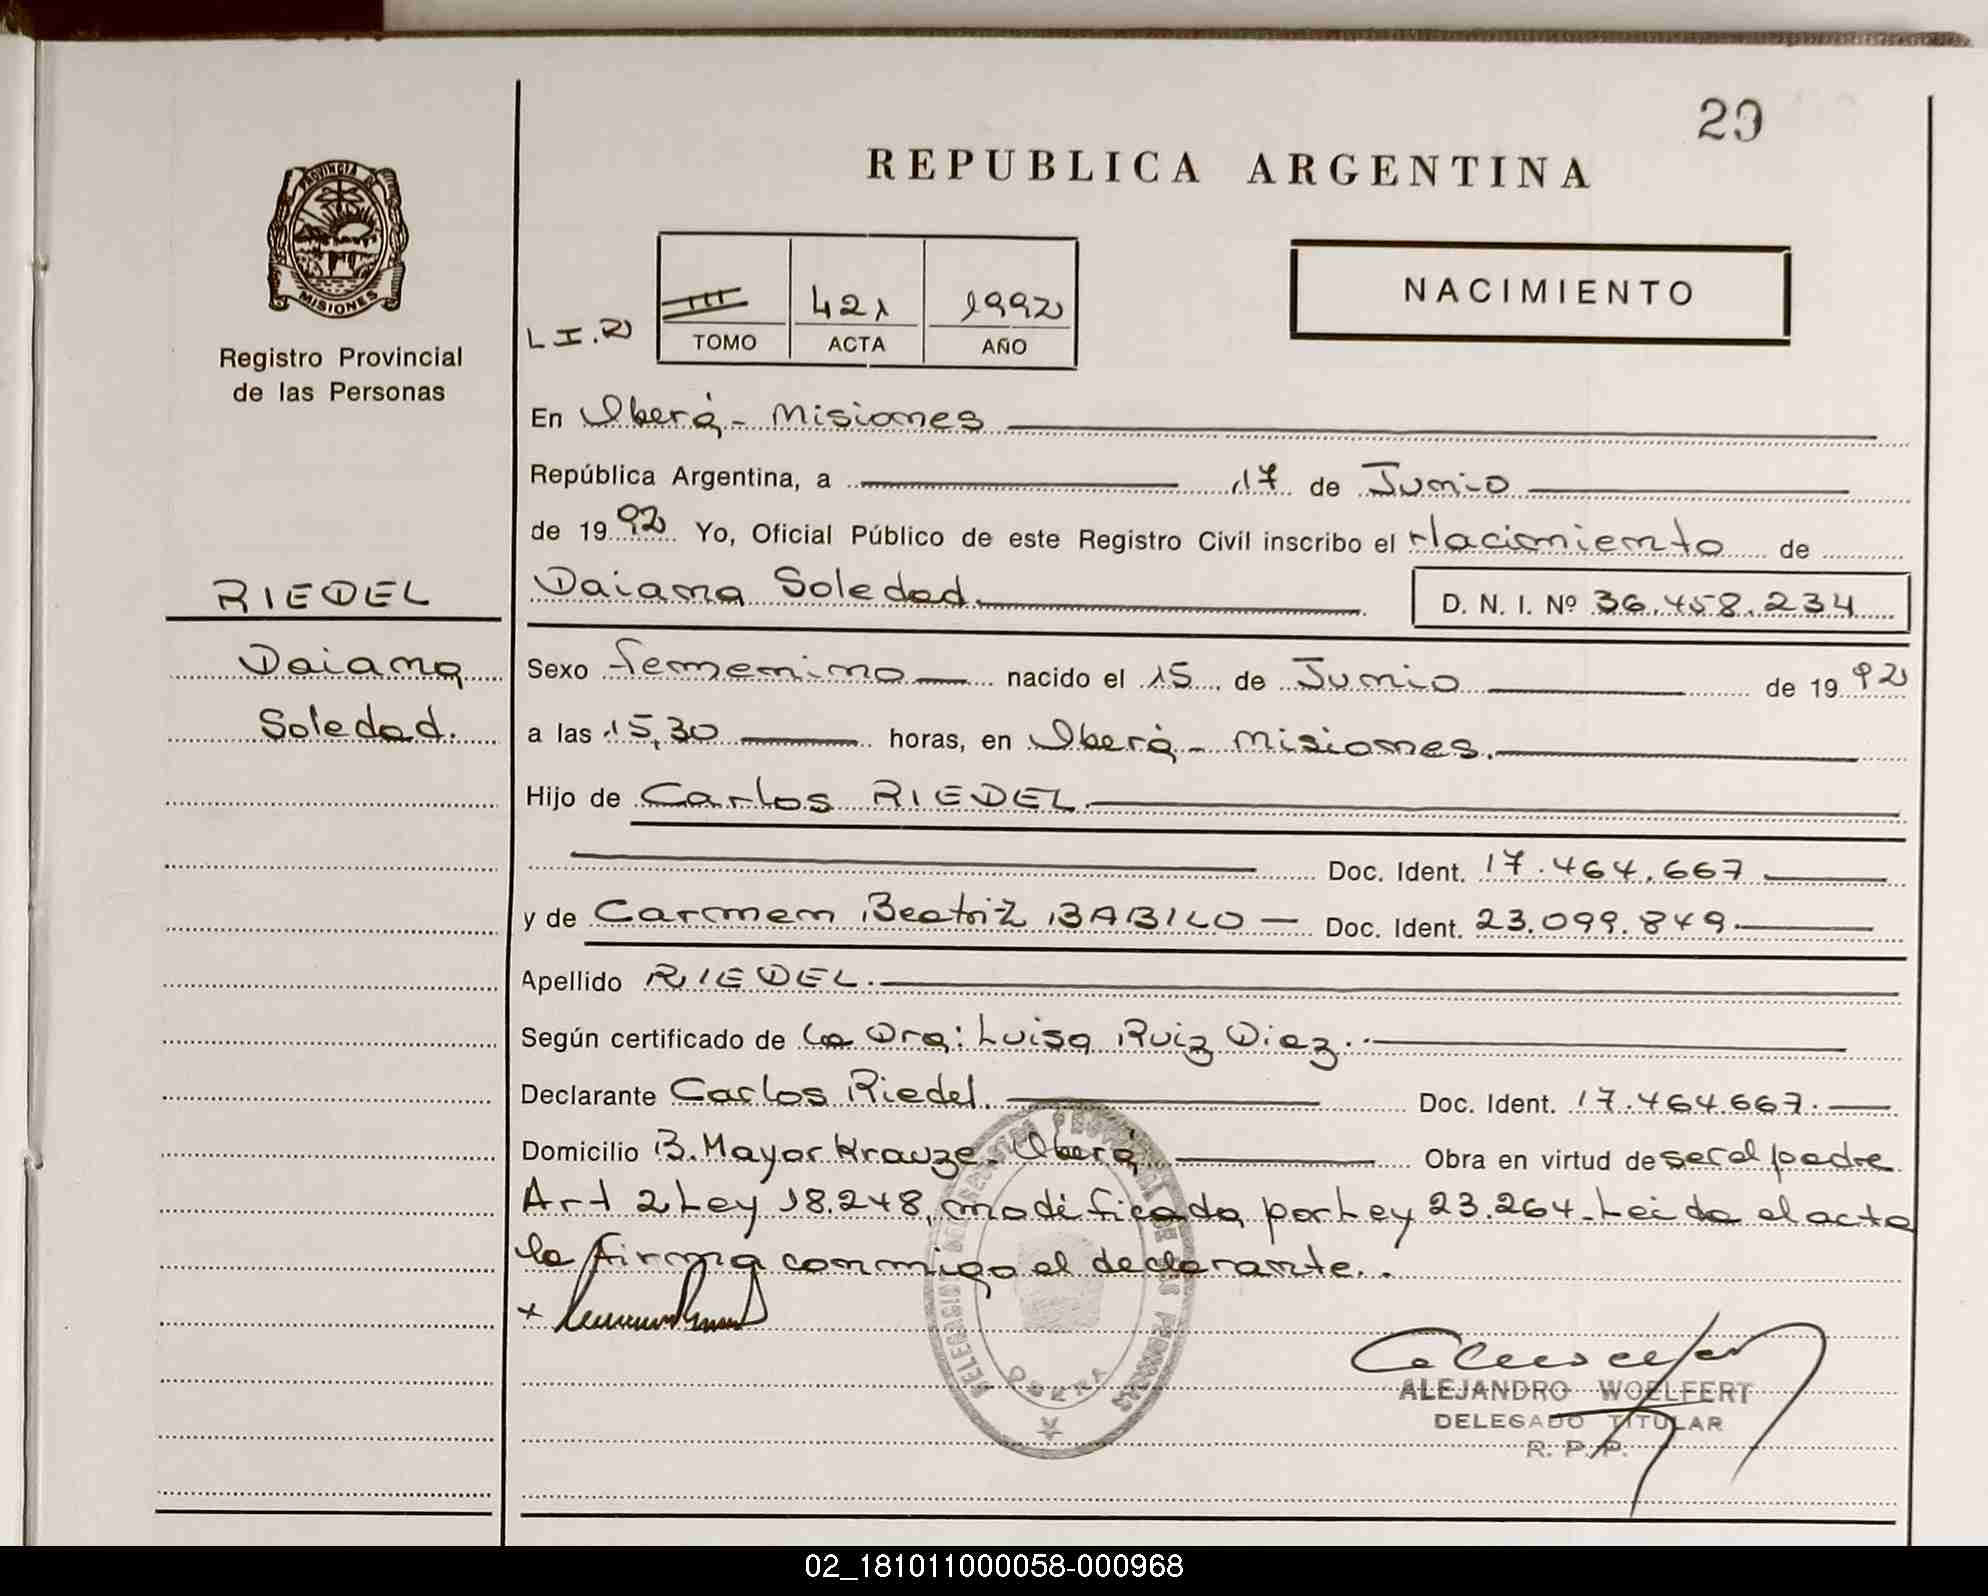 29
REPUBLICA ARGENTINA
PROVINCIA DE
MISIONES
Registro Provincial
de las Personas
NACIMIENTO
L I.R)
III 421 1992
TOMO ACTA AÑO
En Oberá - Misiones
República Argentina, a 17 de Junio
de 1992 Yo, Oficial Público de este Registro Civil inscribo el Nacimiento de
RIEDEL
Daiana Soledad. D. N. I. Nº 36.458.234
Daiana
Soledad.
Sexo femenino nacido el 15 de Junio de 1992
a las 15,30 horas, en Oberá - Misiones.
Hijo de Carlos RIEDEL
Doc. Ident. 17.464.667
y de Carmen Beatriz BABILO Doc. Ident. 23.099.849.
Apellido RIEDEL.
Según certificado de la Dra: Luisa Ruiz Diaz.
Declarante Carlos Riedel. Doc. Ident. 17.464.667.
Domicilio B. Mayor Krauze. Oberá Obra en virtud de ser el padre
Art 2 Ley 18.248, modificada por Ley 23.264. Leida el acta
la firma conmigo el declarante..
DELEGACION DEL REGISTRO PROVINCIAL DE LAS PERSONAS
OBERA
ALEJANDRO WOELFERT
DELEGADO TITULAR
R. P. P.
02_181011000058-000968